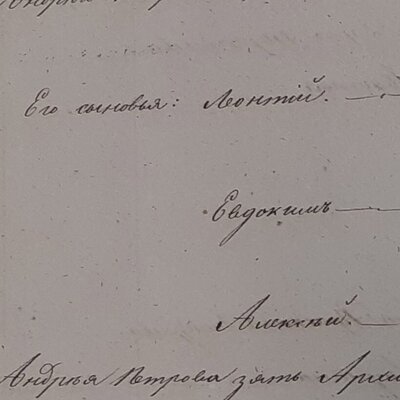 Его сыновья: Леонтій.
Евдокимъ
Алексѣй.
Андрѣя Петрова зять